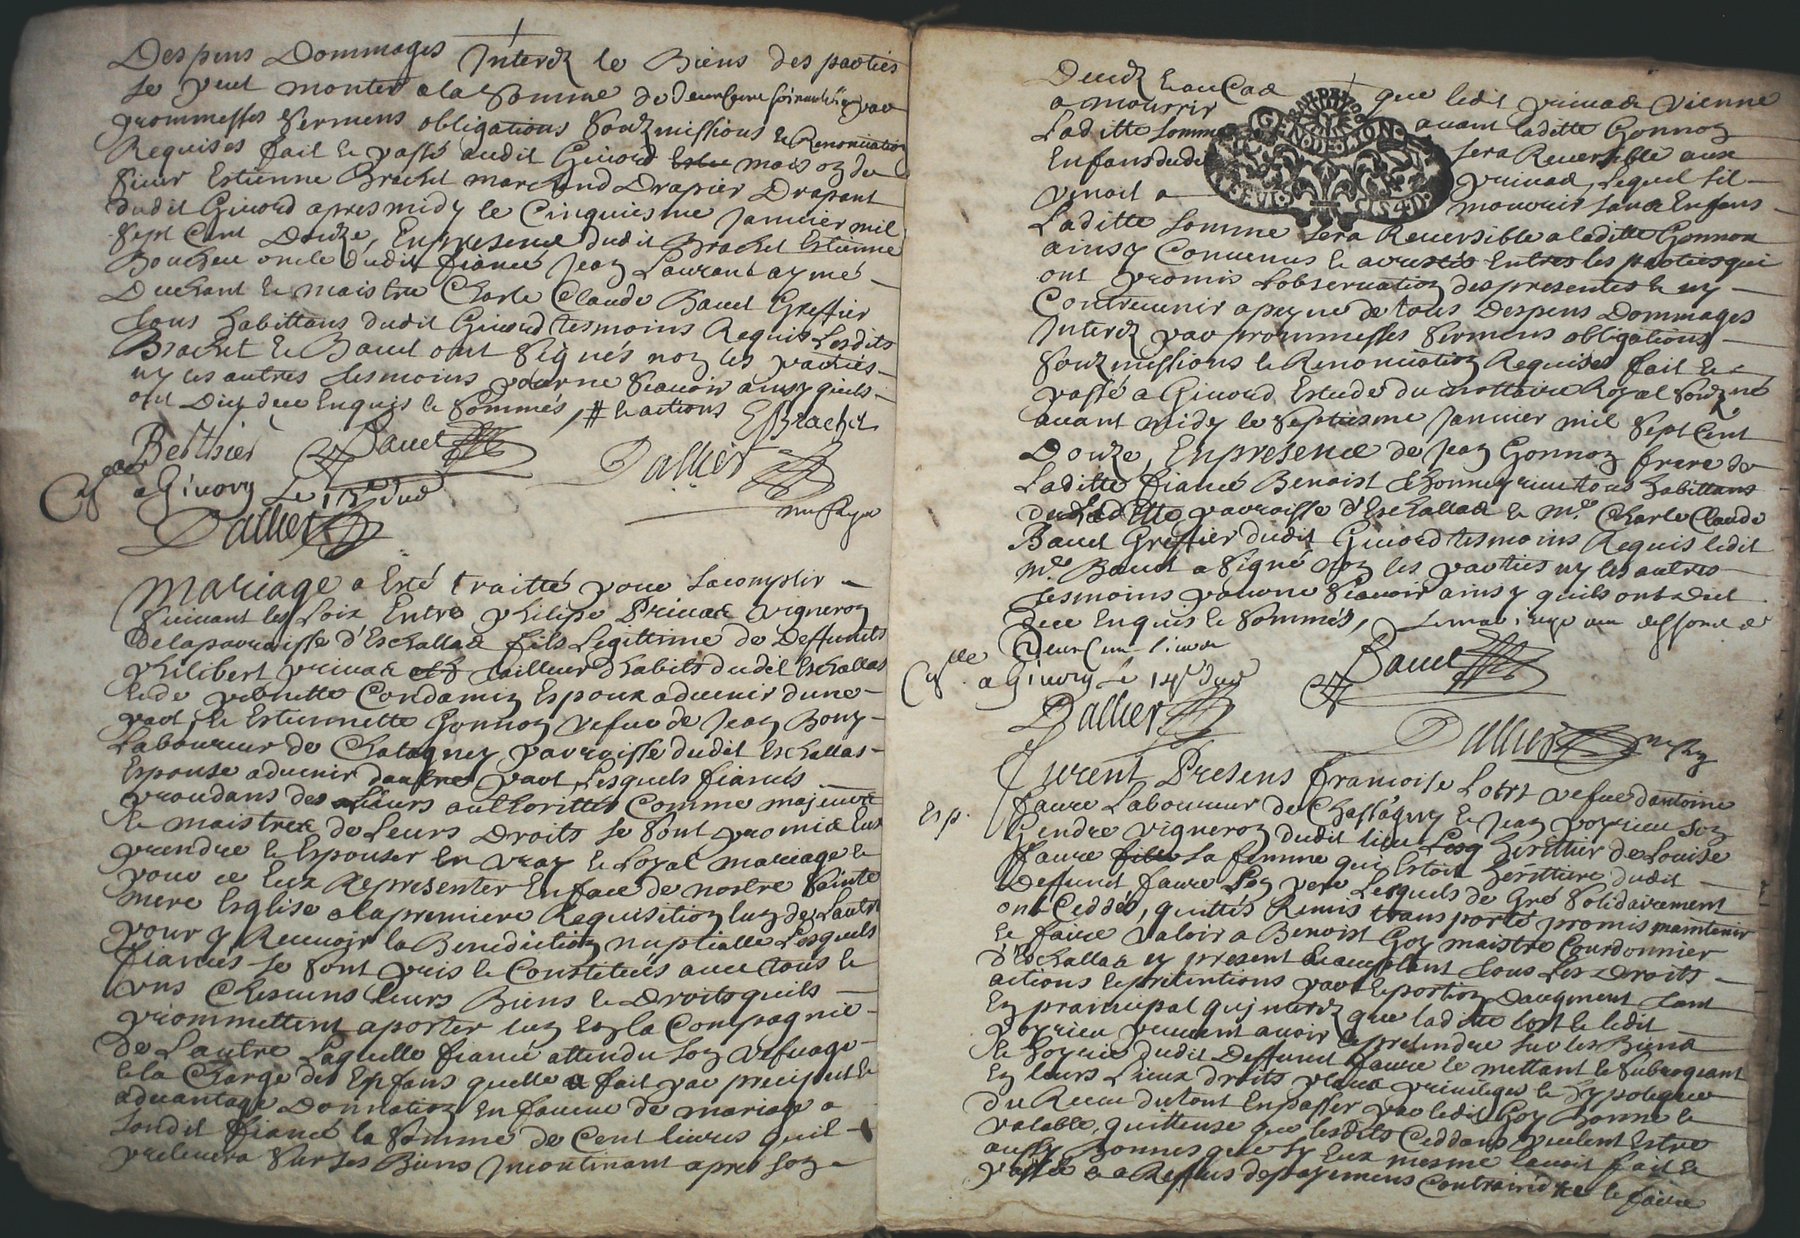 Despens Dommages Interez le Biens des parties
se peut monter a la somme de deux Cens soixante
prommesses sermens obligations soubzmissions & Renonciation
Requises fait & passé audit Givord maison du
sieur Estienne Brachet marchand Drapier Drapant
dudit Givord apres midy le Cinquiesme Janvier mil
sept Cent Douze, En presence dudit Brachet Estienne
Boucheu oncle dudit fiancé Jean Laurant aymé
Duchant & maistre Charle Claude Bauet Greffier
tous habittans dudit Givord tesmoins Requis Lesdits
Brachet & Bauet ont signés non les parties
ny les autres tesmoins pour ne scavoir ainsy quils
ont Dit de ce Enquis & sommés, # & actions EBrachet
Berthier Bauet Dallier
Clle a Givors Le 15e dud
Dallier
Mariage a Esté traitté pour sacomplir
suivant les Loix Entre philipe Privac vigneron
de la parroisse d'Eschallas fils Legittime de Deffunts
philibert privac tailleur dhabits dudit Eschallas
& de pernette Condamin Espoux advenir dune
part, & Estiennette Gonnon vefue de Jean Bony
Laboureur de Chatagney parroisse dudit Eschallas
Espouse advenir dautre part Lesquels fiancés
procedans des Leurs authorittés Comme majeures
& maistres de Leurs Droits se sont promis Eux
prendre & Espouser en vray & Loyal mariage &
pour ce Eux Representer En face de nostre sainte
mere Esglise a la premiere Requisition lun de Lautre
pour y Recevoir la Benediction nuptialle Lesquels
fiancés se sont pris & Constitués avec tous &
uns Chescuns leurs Biens & Droits quils
prommettent aporter lun En la Compagnie
de Lautre Laquelle fiancé attendu son vefuage
& la Charge des Enfans quelle a fait par preciput &
advantage Donnation En faveur de mariage a
sondit fiancé la somme de Cent livres quil
prelevera sur ses Biens Incontinant apres son
Deced & au Cas que ledit privac vienne
a mourrir avant laditte Gonnon
Laditte somme sera Reversible aux
Enfans dudit privac, lequel sil
venoit a mourir sans Enfans
Laditte somme sera Reversible a laditte Gonnon
ainsy Convenus & arrestés Entre les parties qui
ont promis Lobservation des presentes & ny
Contrevenir a peyne de tous Despens Dommages
Interez par prommesses sermens obligations
soubzmissions & Renonciation Requises fait &
passé a Givord Estude du nottaire Royal soubzné
avant midy le septiesme Janvier mil sept Cent
Douze, En presence de Jean Gonnon frere de
Laditte fiancé Benoist Thonnerieux tous habittans
de Laditte parroisse d'Eschallas & Me Charle Claude
Bauet Greffier dudit Givord tesmoins Requis ledit
Me Bauet a signé non les parties ny les autres
tesmoins pour ne scavoir ainsy quils ont dit
de ce Enquis & sommés,
deux Cens livres
Clle a Givors Le 14e dud Bauet
Dallier Dallier
Exp.
furent Presens francoise Lort vefue dantoine
faure Laboureur de Chassagny & Jean poyrieu son
Gendre vigneron dudit lieu Herittier de Louise
faure sa femme qui Estoit Herittiere dudit
Deffunt faure son pere Lesquels de Gré solidairement
ont Ceddés, quittés Remis transporté promis maintenir
& faire valoir a Benoist Goy maistre Courdonnier
d'Eschallas cy present & acceptant tous Les Droits
actions & pretentions par & portion daugment tant
En prainsipal qu'interez que laditte Lort & ledit
poyrieu peuvent avoir & pretendre sur les Biens
& hoyrie dudit Deffunt faure le mettant & subrogeant
En leurs Lieux droits place privileges & hypoteques
Du Receu du tout En passer par ledit Goy Bonne &
valable, quittense que lesdits Ceddans veulent Estre
aussy Bonnes que sy Eux mesme lavoit fait &
passé & a Reffus de payemens Contraindre & faire